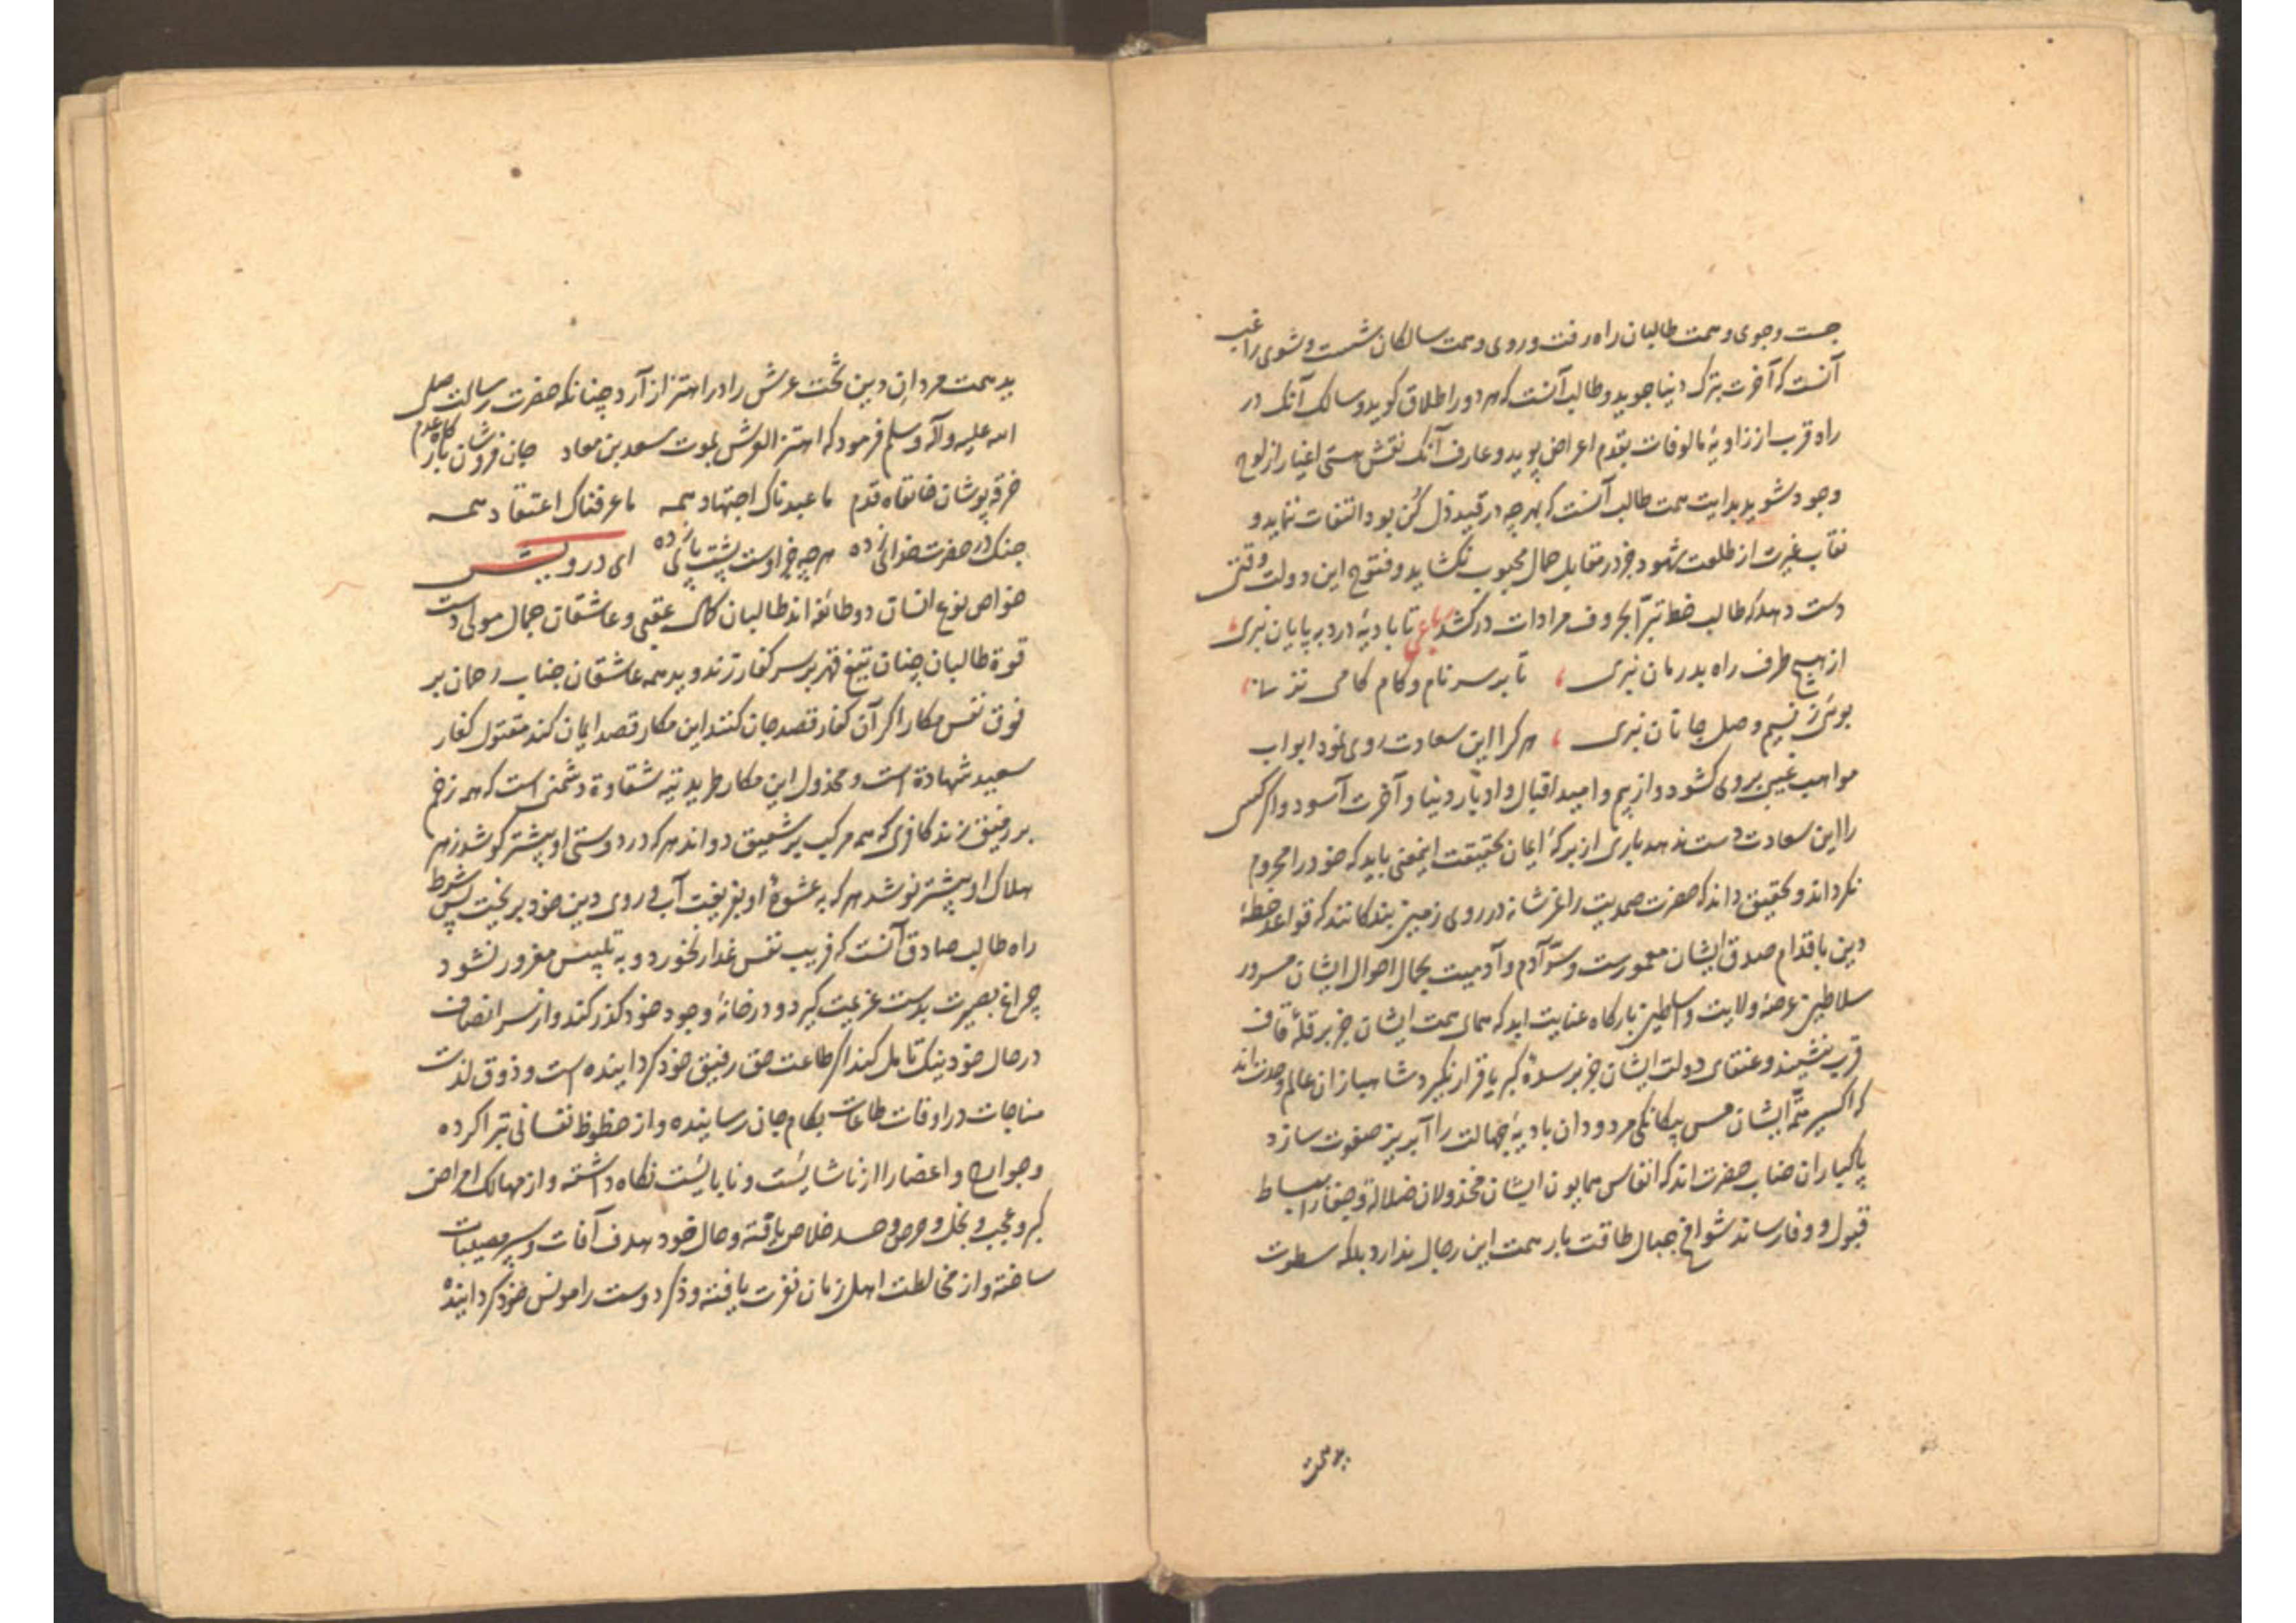 جست وجوی وهمت طالبان راه رفت وروی وهمت سالکان شست وشوی راغب
آنست که آخرت بترک دنیا جوید وطالب آنست که هر دو را طلاق کوید وسالک آنک در
راه قرب از زاویهٔ مالوفات بقدم اعراض پوید وعارف آنک نقش هستی اغیار از لوح
وجود شوید بدایت همت طالب آنست که بهرچه در قید ذل کُن بود التفات ننماید و
نقاب غیرت از طلعت شهود جز در مقابل جمال محبوب نکشاید وفتوح این دولت وقتی
دست دهد که طالب خط تبرّا بحروف مرادات درکشد رباعی تا بادیهٔ درد به پایان نبری
از هیچ طرف راه بدرمان نبری تا بر سر نام وکام کامی نزنی
بوئی ز نسیم وصل جانان نبری هر کرا این سعادت روی نمود ابواب
مواهب غیبی بروی کشود واز بیم وامید اقبال وادبار دنیا وآخرت آسود واکر کسی
را این سعادت دست ندهد باری از برکهٔ ایمان بحقیقت اینمعنی باید که خود را محروم
نکرداند وتحقیق داند که حضرت صمدیت را عز شانه در روی زمین بندکانند که قواعد خطهٔ
دین باقدام صدق ایشان معمورست وسرّ آدم وآدمیت بجمال احوال ایشان مسرور
سلاطین عرصهٔ ولایت وسلاطین بارکاه عنایت اید که همای همت ایشان جز بر قلهٔ قاف
قرب ننشیند وعنقای دولت ایشان جز بر سدهٔ کبریا قرار نکیرد شاهبازان عالم وحدت اند
که اکسیر همّت ایشان مس بیکانکی مردودان بادیهٔ جهالت را آبریز صفوت سازد
پاکبازان جناب حضرت اند که انفاس همایون ایشان مخذولان ضلالة وجفا را ببساط
قبول ووفا رساند شوامخ جبال طاقت بار همت این رجال ندارد بلکه سطوت
بدهمت
بدهمت مردان دین تخت عرش را در اهتزاز آرد چنانکه حضرت رسالت صلی
الله علیه وآله وسلم فرمود که اهتز العرش لموت سعد بن معاد جان فروشان بارکاه عدم
خرقه پوشان خانقاه قدم ما عبدناک اجتهاد همه ما عرفناک اعتقاد همه
چنک در حضرت خدای زده هر چه جز اوست پشت پای زده ای درویش
خواص نوع انسان دو طائفه اند طالبان کمال عقبی وعاشقان جمال مولی دست
قوة طالبان چنان تیغ قهر بر سر کفار زند وید همه عاشقان جناب رحمان بر
فوق نفس مکار اکر آن کفار قصد جان کنند این مکار قصد ایمان کند مقتول کفار
سعید شهادة است ومخذول این مکار طرید تیه شقاوة دشمنی است که همه زخم
بر رفیق زند کافری که همه مرکب بر شفیق دواند هر که در دوستی او بیشتر کوشد زهر
هلاک او بیشتر نوشد هر که به عشوهٔ او بفریفت آب روی دین خود بریخت پس شرط
راه طالب صادق آنست که فریب نفس غدار نخورد وبه تلبیس مغرور نشود
چراغ بصیرت بدست عزیمت کیرد ودر خانهٔ وجود خود کذر کند واز سر انصاف
در حال خود نیک تامل کند اکر طاعت حق رفیق خود کردانیده است وذوق لذت
مناجات در اوقات طاعات بکام جان رسانیده واز حظوظ نفسانی تبرا کرده
وجوارح واعضا را از ناشایست ونابایست نکاه داشته واز مهالک امراض
کبر وعجب وبخل وحرص وحسد خلاص یافته وحال خود هدف آفات وسپر مصیبات
ساخته واز مخالطت اهل زمان نفرت یافته وذکر دوست را مونس خود کردانیده